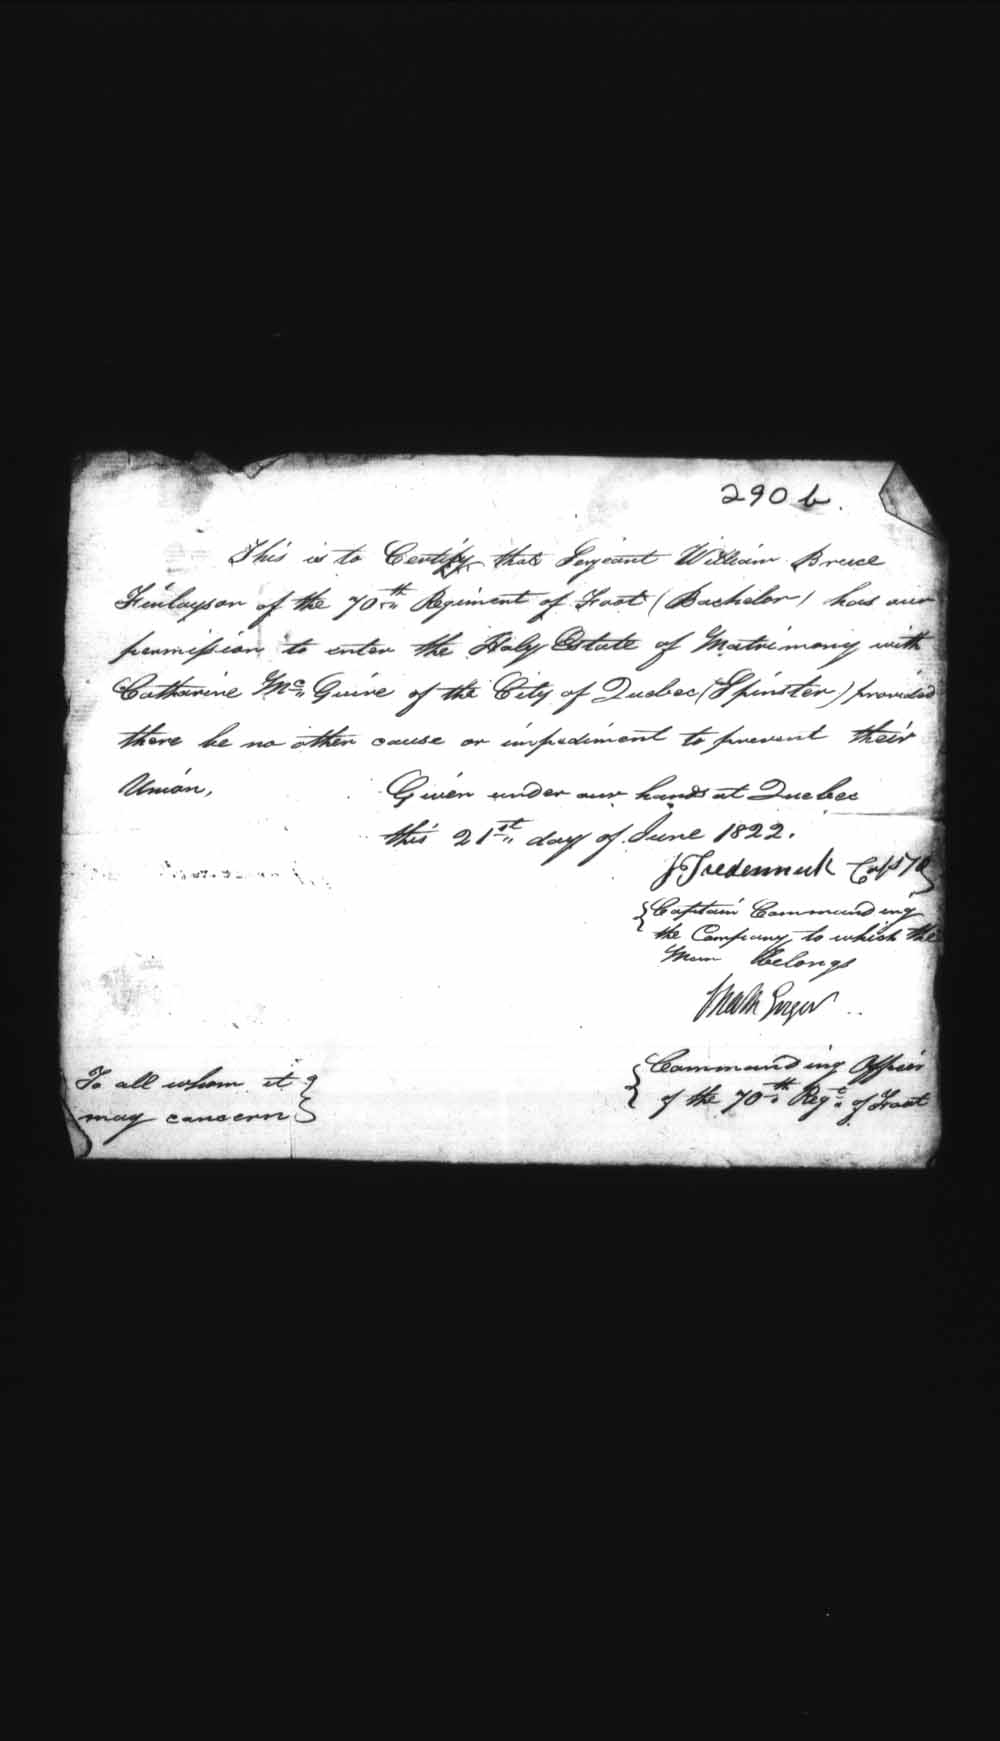 290 b.
This is to Certify that Serjeant William Bruce
Finlayson of the 70th Regiment of Foot (Bachelor) has our
permission to enter the Holy Estate of Matrimony with
Catharine Mc Guire of the City of Quebec (Spinster) provided
there be no other cause or impediment to prevent their
Union,
Given under our hands at Quebec
this 21st day of June 1822.
J Tredennick Capt 70
Captain Commanding
the Company to which the
Man Belongs
Commanding Officer
of the 70th Regt of Foot
To all whom it
may concern